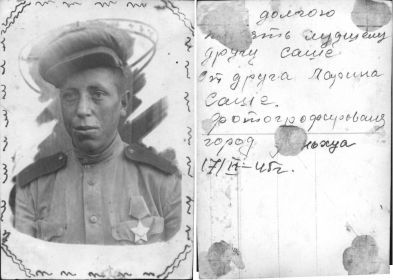 долгою
лудшему
другу Саше
от друга Ларина
Саше.
Фотографировались
город
17/IV-45г.